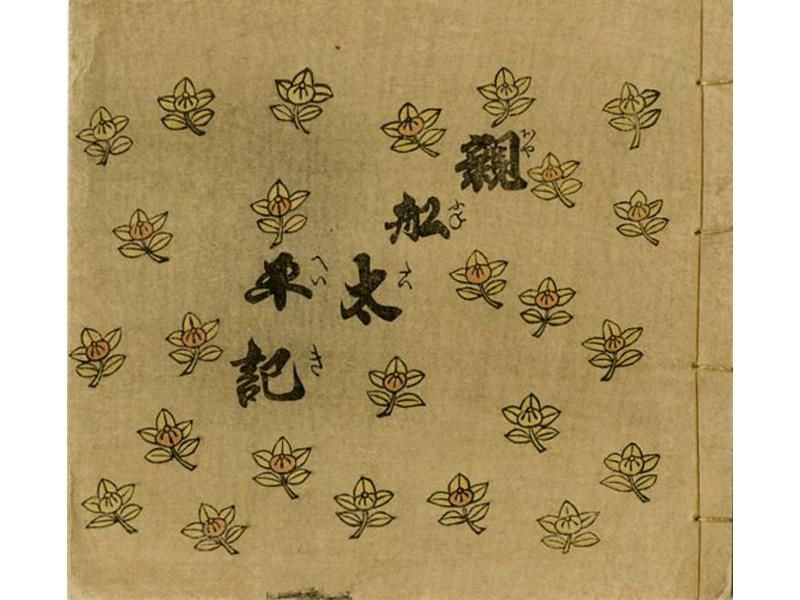 親舩太平記
おやふねたいへいき